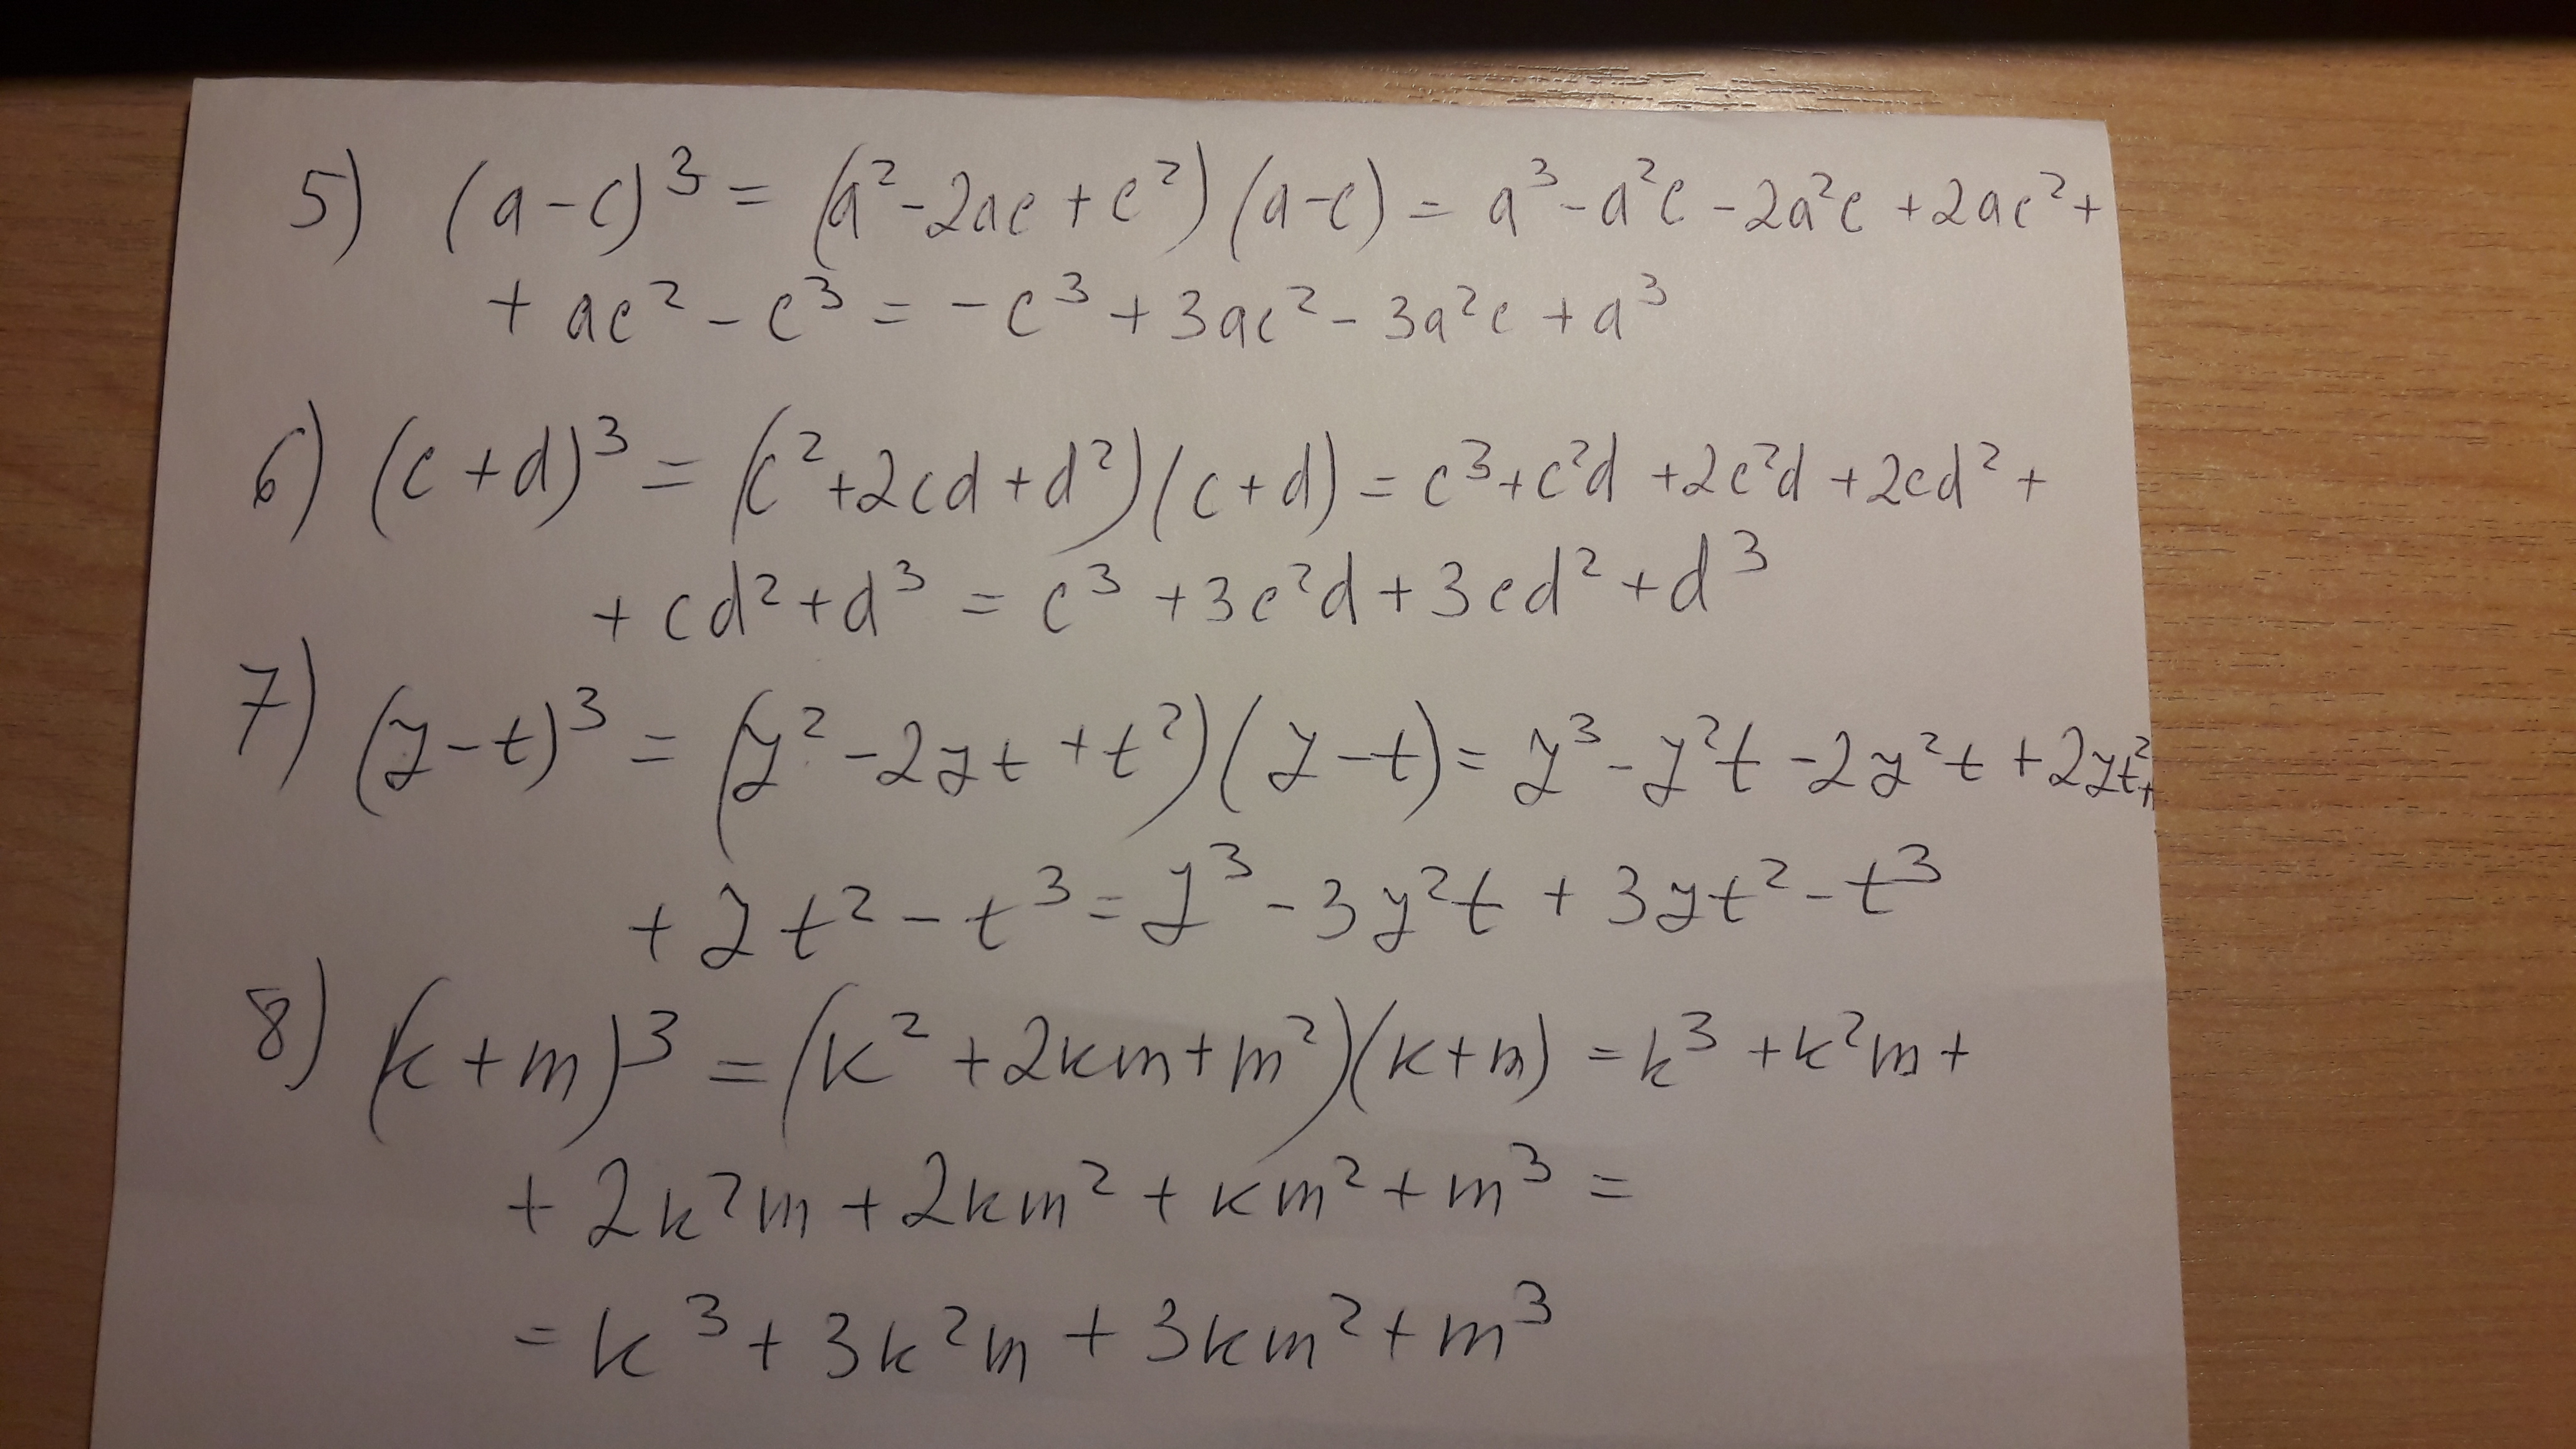 5) (a-c)³ = (a²-2ac+c²)(a-c) = a³-a²c-2a²c+2ac²+
+ac²-c³ = -c³+3ac²-3a²c+a³
6) (c+d)³ = (c²+2cd+d²)(c+d) = c³+c²d+2c²d+2cd²+
+cd²+d³ = c³+3c²d+3cd²+d³
7) (y-t)³ = (y²-2yt+t²)(y-t) = y³-y²t-2y²t+2yt²+
+yt²-t³ = y³-3y²t+3yt²-t³
8) (k+m)³ = (k²+2km+m²)(k+m) = k³+k²m+
+2k²m+2km²+km²+m³ =
= k³+3k²m+3km²+m³